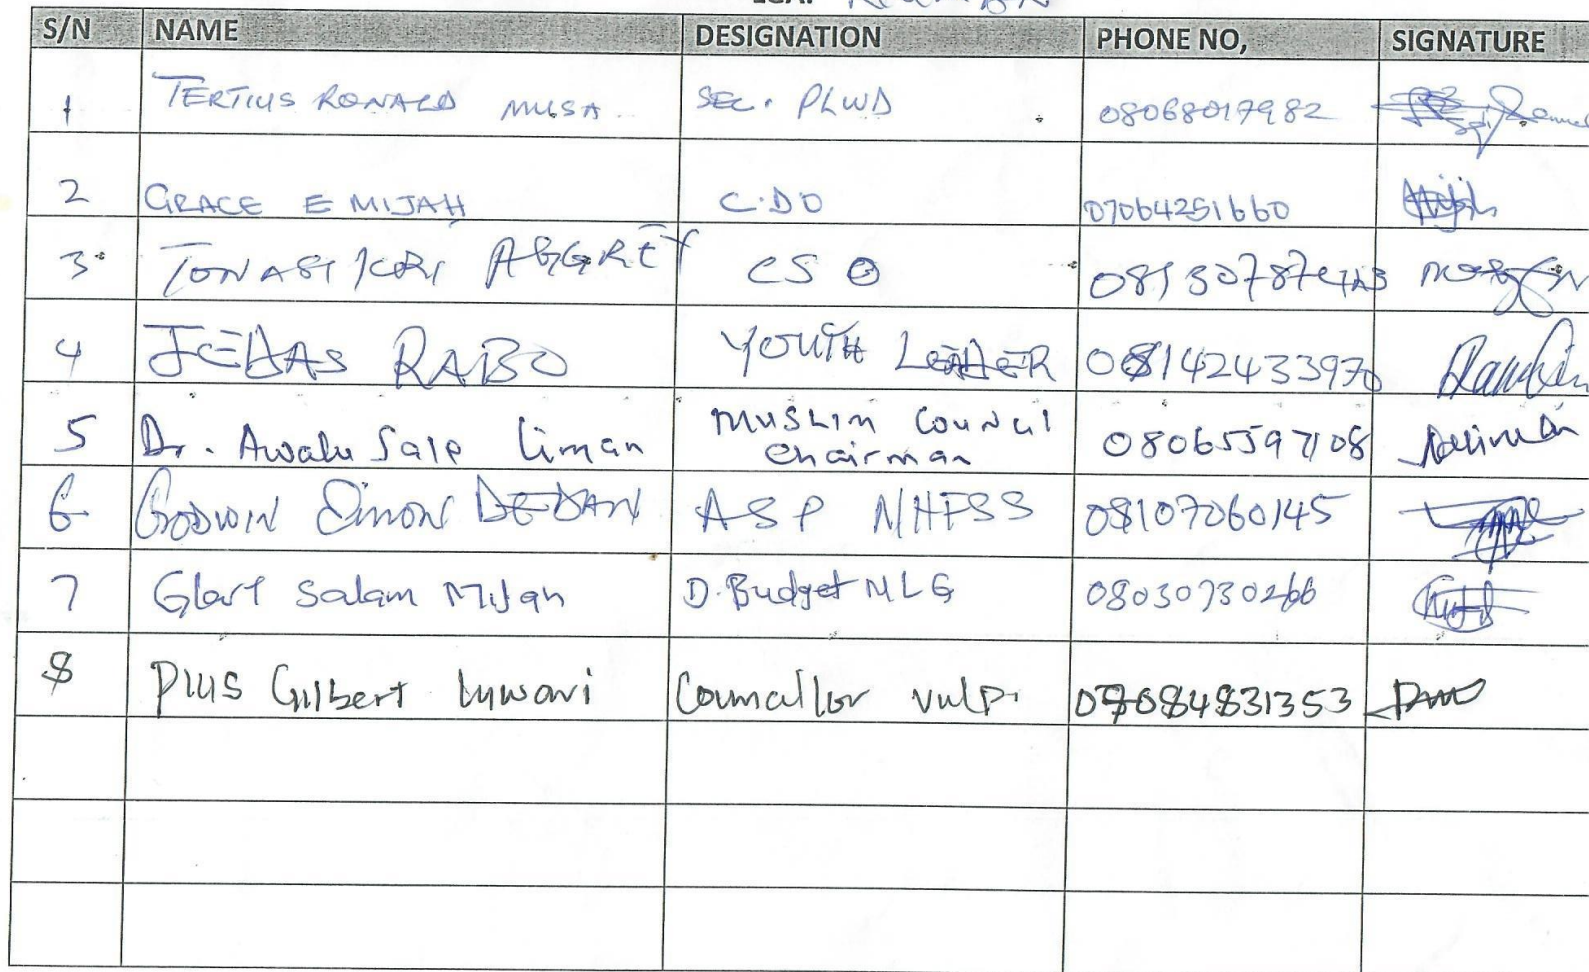 LGA:
S/N NAME DESIGNATION PHONE NO, SIGNATURE
1 TERTIUS RONALD MUSA SEC. PLWD 08068017982
2 GRACE E MIJAH C.DO 07064251660
3 AGGREY CSO
4 JEDAS RABO YOUTH LEADER 08142433970
5 Dr. Awalu Sale Liman MUSLIM Council Chairman 08065597108
6 GODWIN Simon DEDAN ASP N/HFSS 08107060145
7 Salam Mijah D. Budget MLG 08030730266
8 Pius Gilbert Luwari Councallor vulp. 07084831353